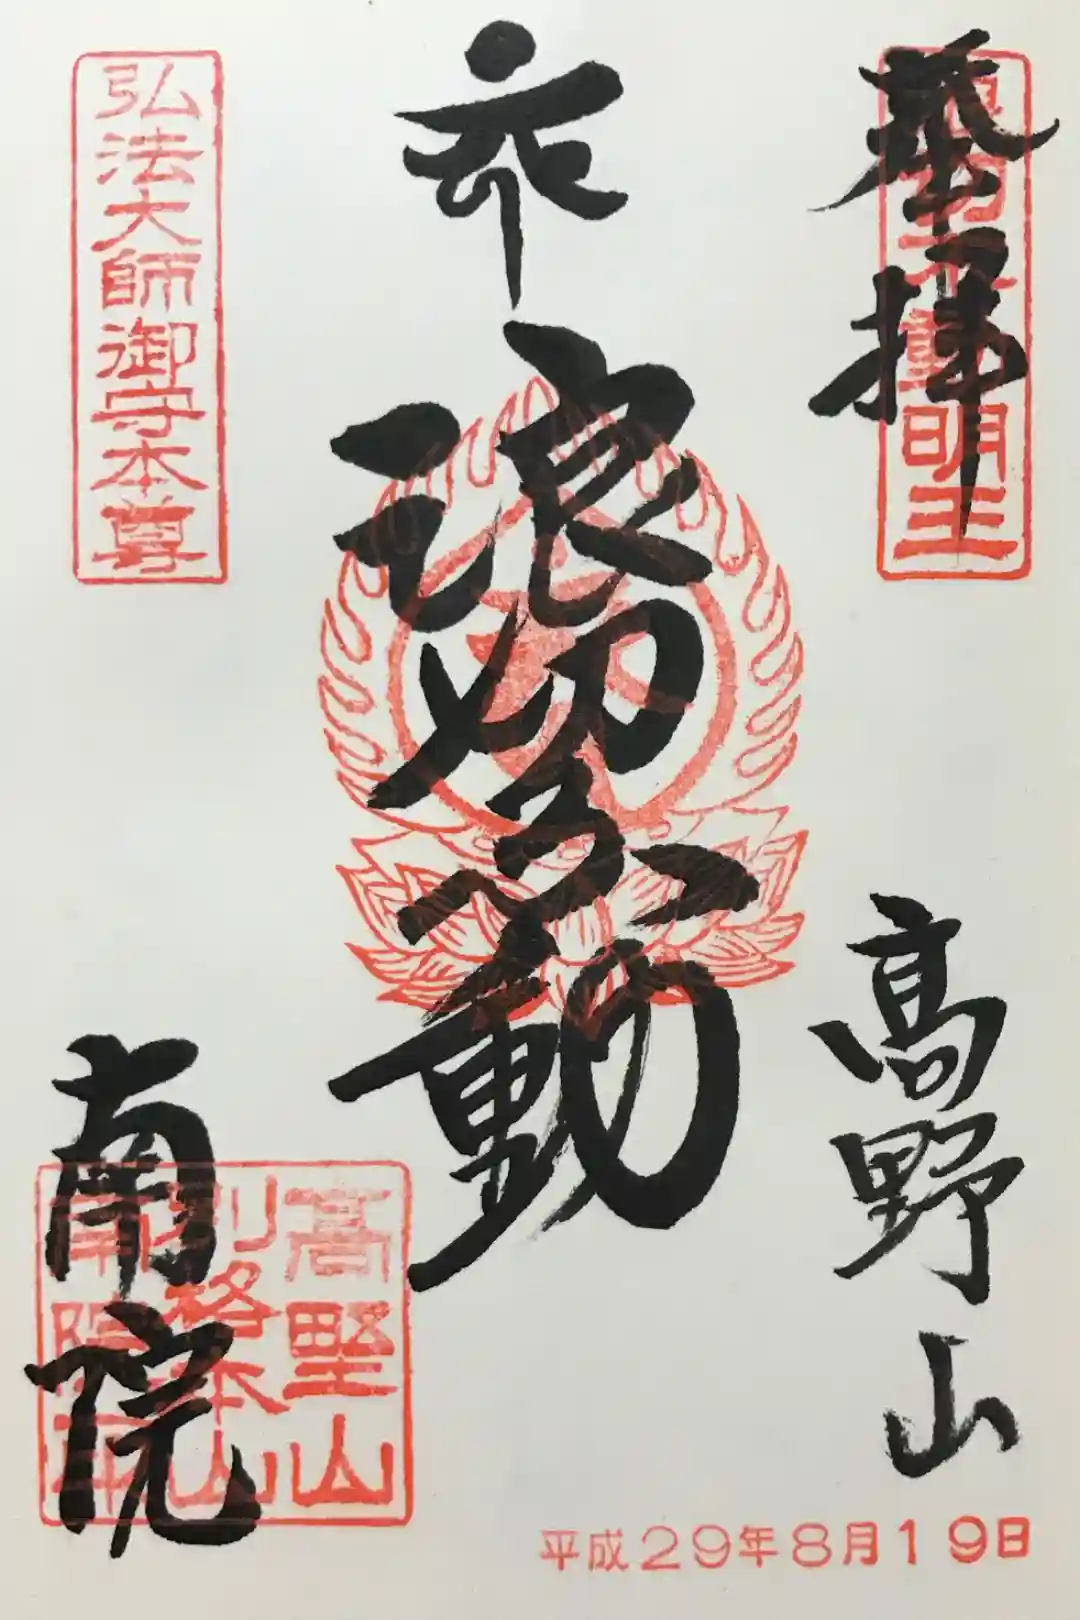 奉拝
浪切不動明王
高野山
浪切不動
弘法大師御守本尊
南院
高野山
別格本山
南院
平成29年8月19日